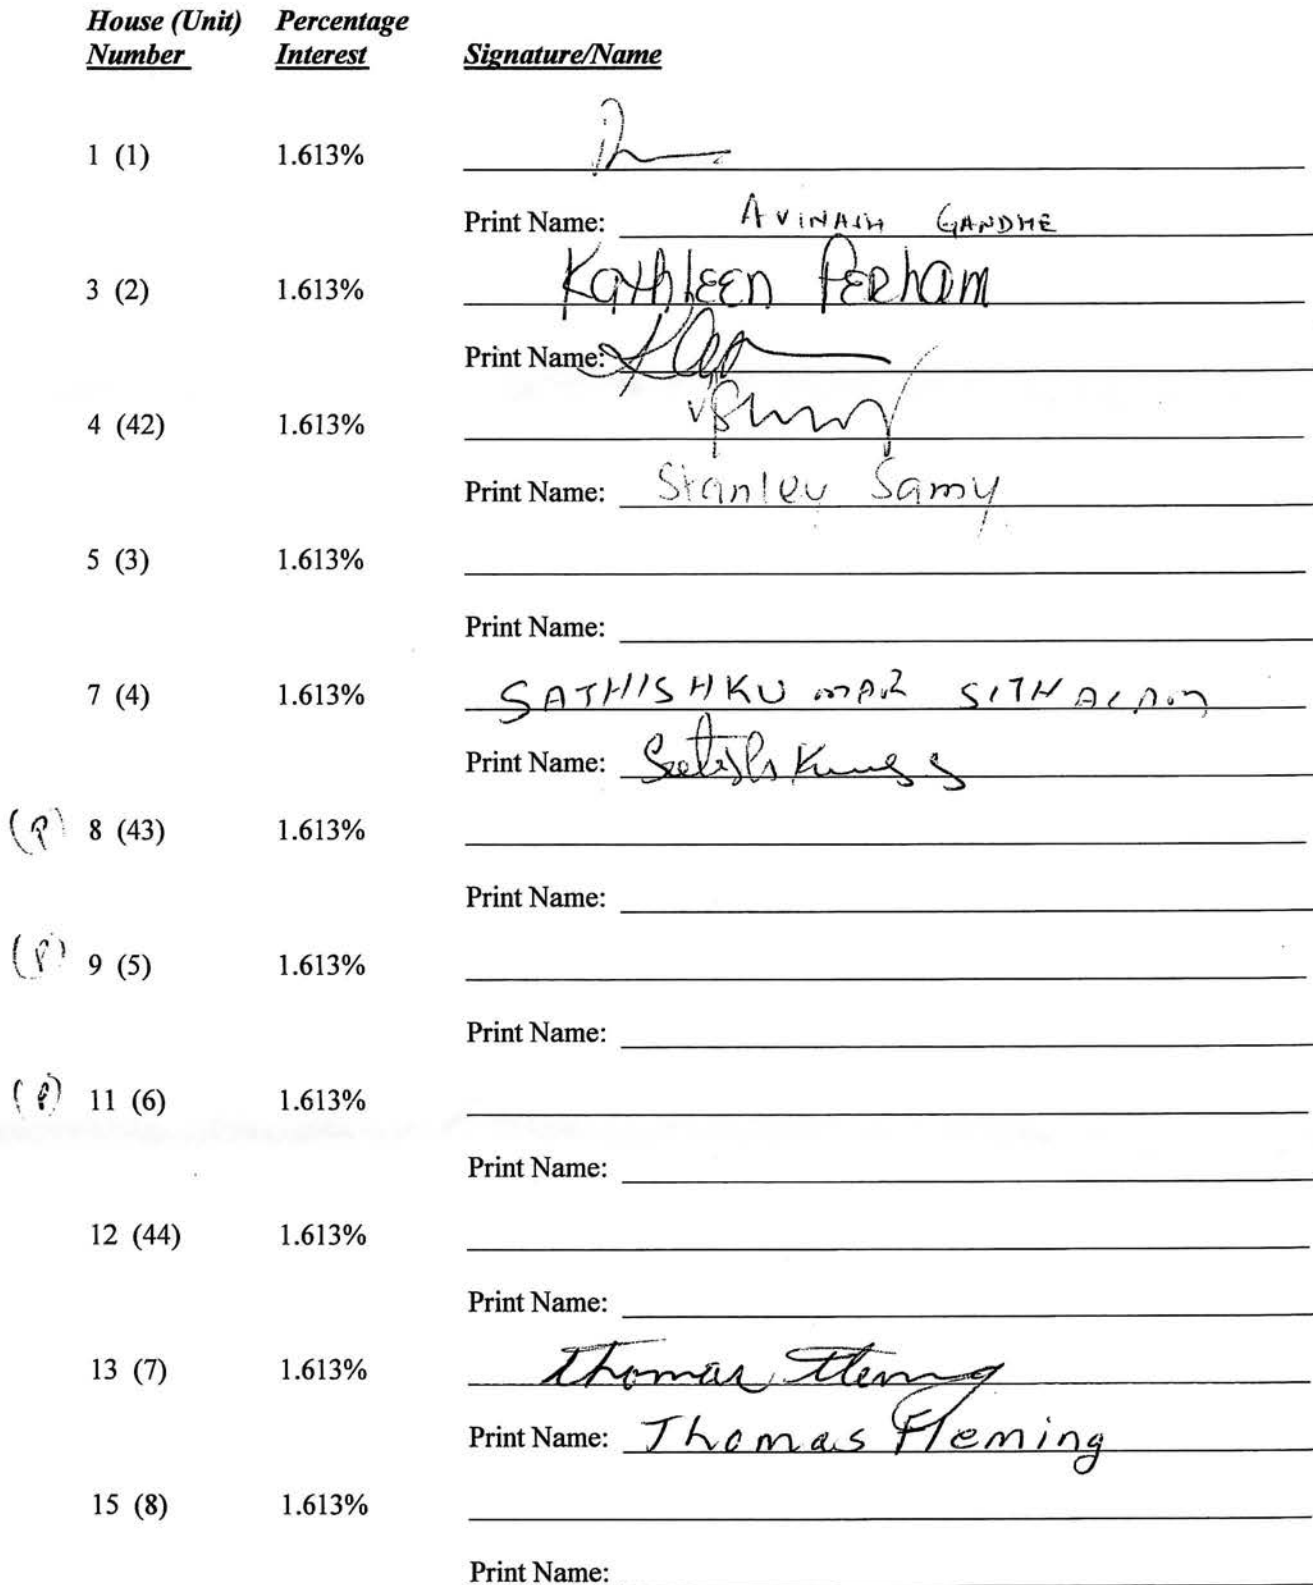 House (Unit) Percentage
Number Interest Signature/Name
1 (1) 1.613%
Print Name: AVINASH GANDHE
3 (2) 1.613% Kathleen Perham
Print Name:
4 (42) 1.613%
Print Name: Stanley Samy
5 (3) 1.613%
Print Name:
7 (4) 1.613% SATHISHKUMAR SITHALAM
Print Name: Satish Kumar S
(P) 8 (43) 1.613%
Print Name:
(P) 9 (5) 1.613%
Print Name:
(P) 11 (6) 1.613%
Print Name:
12 (44) 1.613%
Print Name:
13 (7) 1.613% Thomas Fleming
Print Name: Thomas Fleming
15 (8) 1.613%
Print Name: